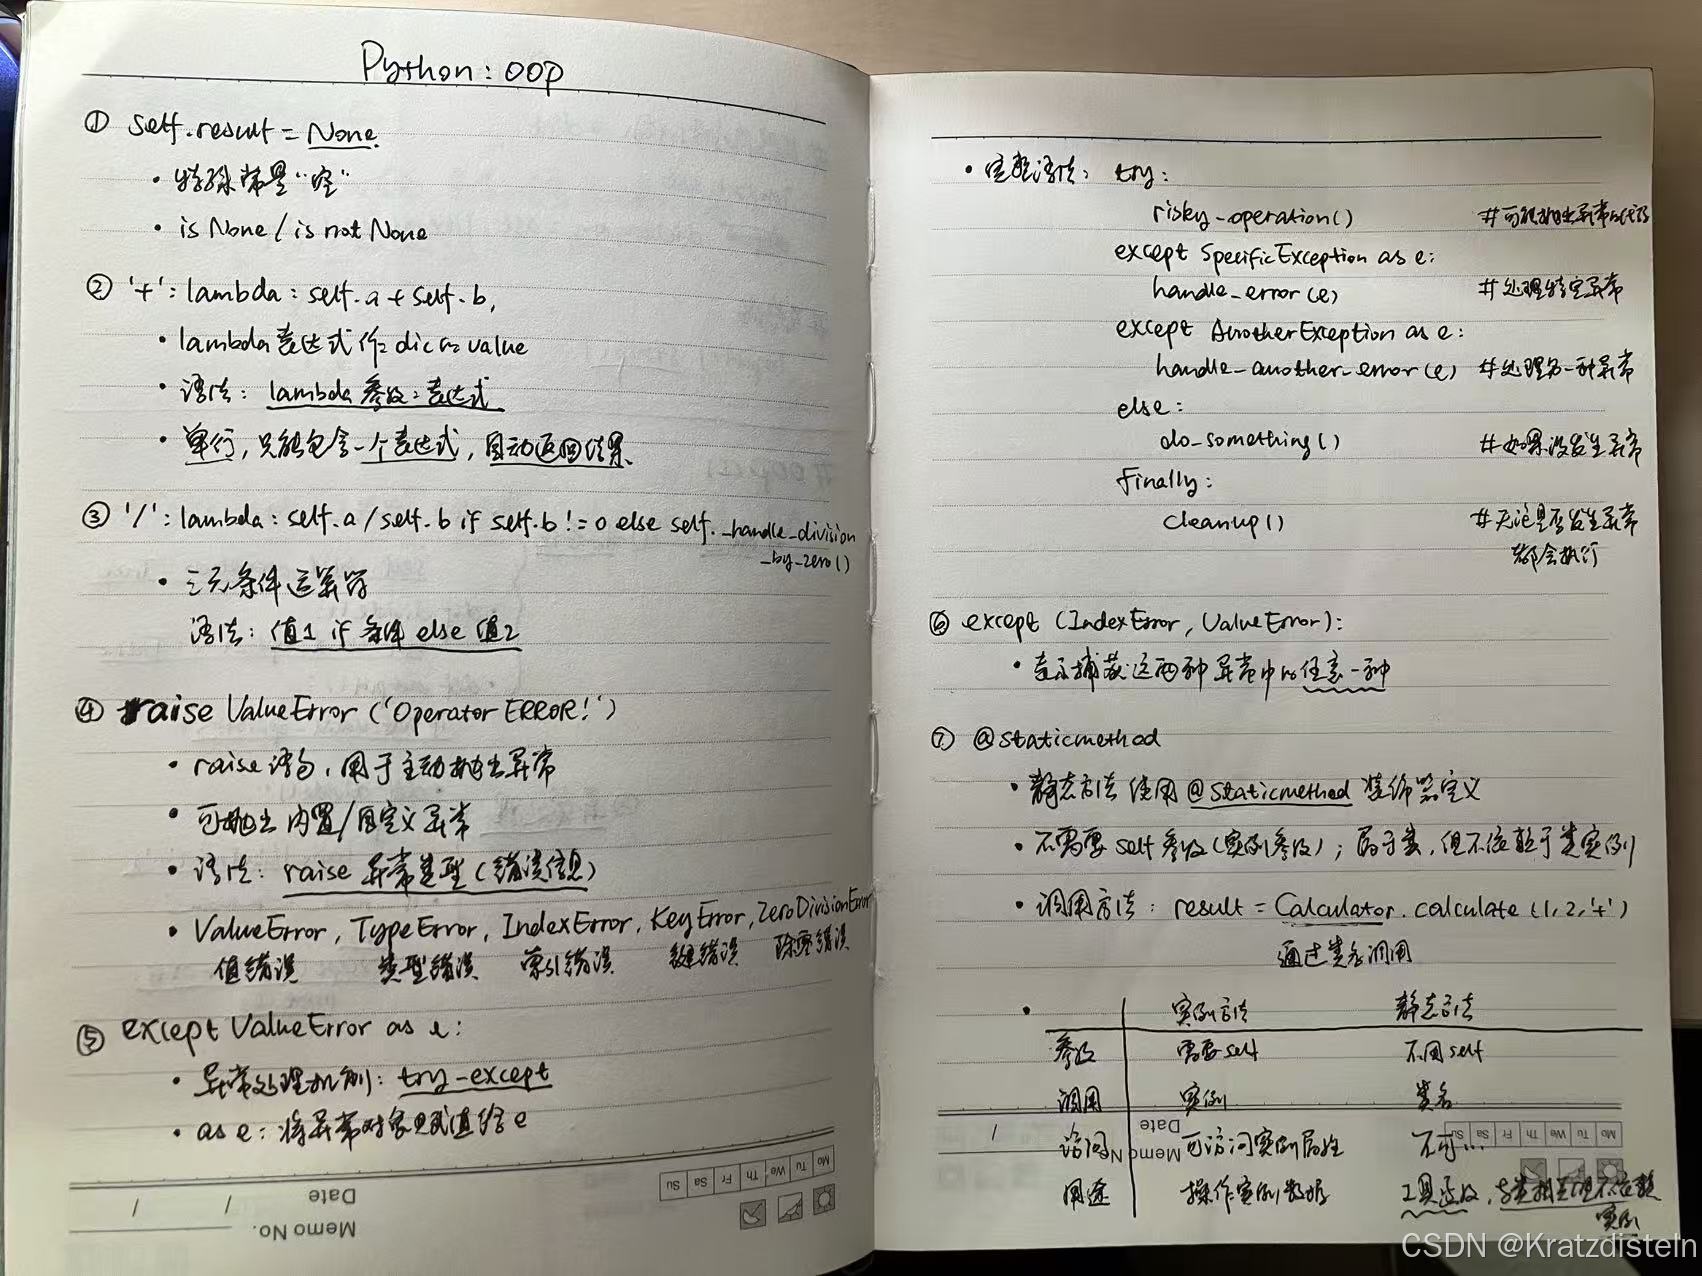 Python: OOP
① self.result = None.
• 特殊常量“空”
• is None / is not None
② '+': lambda: self.a + self.b,
• lambda表达式作为dic的value
• 语法: lambda 参数: 表达式
• 单行, 只能包含一个表达式, 自动返回结果
③ '/': lambda: self.a / self.b if self.b != 0 else self._handle_division
_by_zero()
• 三元条件运算符
语法: 值1 if 条件 else 值2
④ raise ValueError ('Operator ERROR!')
• raise语句, 用于主动抛出异常
• 可抛出内置/自定义异常
• 语法: raise 异常类型(错误信息)
• ValueError, TypeError, IndexError, KeyError, ZeroDivisionError
值错误 类型错误 索引错误 键错误 除零错误
⑤ except ValueError as e:
• 异常处理机制: try-except
• as e: 将异常对象赋值给e
Mo Tu We Th Fr Sa Su
Date / /
Memo No.
• 完整语法: try:
risky_operation() #可能抛出异常的代码
except SpecificException as e:
handle_error(e) #处理特定异常
except AnotherException as e:
handle_another_error(e) #处理另一种异常
else:
do_something() #如果没发生异常
finally:
cleanup() #无论是否发生异常
都会执行
⑥ except (IndexError, ValueError):
• 表示捕获这两种异常中的任意一种
⑦ @staticmethod
• 静态方法使用@staticmethod装饰器定义
• 不需要self参数(实例参数); 属于类, 但不依赖于类实例
• 调用方法: result = Calculator.calculate(1,2,'+')
通过类名调用
• 实例方法 静态方法
参数 需要self 不用self
调用 实例 类名
访问 可访问实例属性 不可…
用途 操作实例数据 工具函数, 与类相关但不依赖
实例
Mo Tu We Th Fr Sa Su
Date /
Memo No.
CSDN @Kratzdisteln